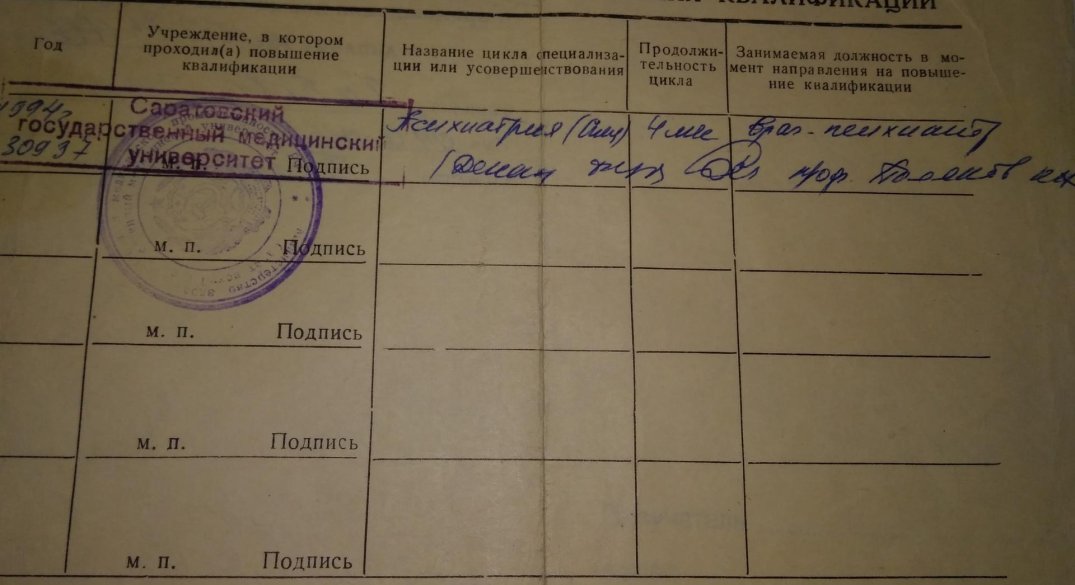 КВАЛИФИКАЦИИ
Год
Учреждение, в котором
проходил(а) повышение
квалификации
Название цикла специализа-
ции или усовершенствования
Продолжи-
тельность
цикла
Занимаемая должность в мо-
мент направления на повыше-
ние квалификации
1994
30937
Саратовский
государственный медицинский
университет
Психиатрия
4 мес
врач-психиатр
м. п. Подпись
(Декан
проф.
м. п. Подпись
м. п. Подпись
м. п. Подпись
м. п. Подпись